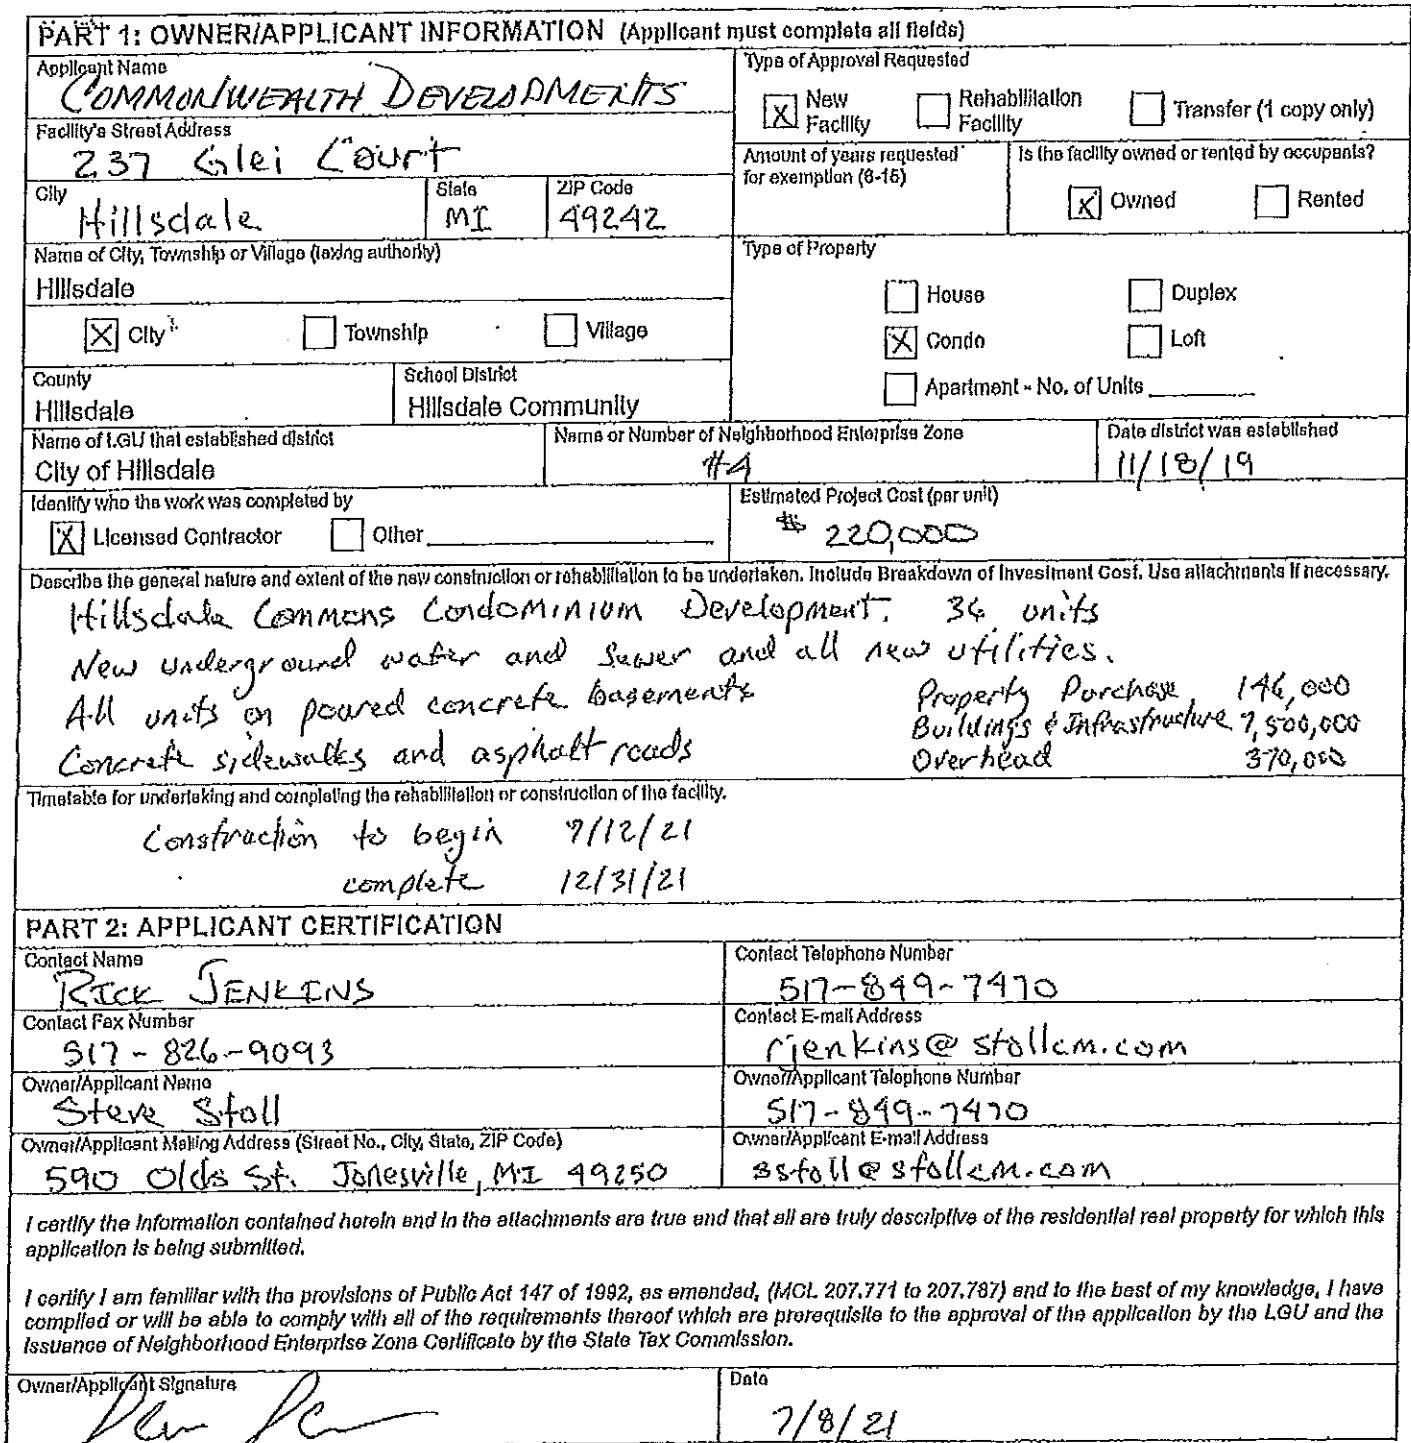 PART 1: OWNER/APPLICANT INFORMATION (Applicant must complete all fields)
Applicant Name
COMMONWEALTH DEVELOPMENTS
Type of Approval Requested
X New Facility
Rehabilitation Facility
Transfer (1 copy only)
Facility's Street Address
237 Glei Court
Amount of years requested for exemption (6-15)
Is the facility owned or rented by occupants?
X Owned
Rented
City
Hillsdale
State
MI
ZIP Code
49242
Name of City, Township or Village (taxing authority)
Hillsdale
X City
Township
Village
Type of Property
House
Duplex
X Condo
Loft
Apartment - No. of Units
County
Hillsdale
School District
Hillsdale Community
Name of LGU that established district
City of Hillsdale
Name or Number of Neighborhood Enterprise Zone
#4
Date district was established
11/18/19
Identify who the work was completed by
X Licensed Contractor
Other
Estimated Project Cost (per unit)
$ 220,000
Describe the general nature and extent of the new construction or rehabilitation to be undertaken. Include Breakdown of Investment Cost. Use attachments if necessary.
Hillsdale Commons Condominium Development. units
New underground water and sewer and all new utilities.
All units on poured concrete basements
Property Purchase 146,000
Buildings & Infrastructure 7,500,000
Concrete sidewalks and asphalt roads
Overhead 370,000
Timetable for undertaking and completing the rehabilitation or construction of the facility.
Construction to begin 7/12/21
complete 12/31/21
PART 2: APPLICANT CERTIFICATION
Contact Name
RICK JENKINS
Contact Telephone Number
517-849-7470
Contact Fax Number
517-826-9093
Contact E-mail Address
rjenkins@stollcm.com
Owner/Applicant Name
Steve Stoll
Owner/Applicant Telephone Number
517-849-7470
Owner/Applicant Mailing Address (Street No., City, State, ZIP Code)
590 Olds St. Jonesville, MI 49250
Owner/Applicant E-mail Address
sstoll@stollcm.com
I certify the information contained herein and in the attachments are true and that all are truly descriptive of the residential real property for which this
application is being submitted.
I certify I am familiar with the provisions of Public Act 147 of 1992, as amended, (MCL 207.771 to 207.787) and to the best of my knowledge, I have
complied or will be able to comply with all of the requirements thereof which are prerequisite to the approval of the application by the LGU and the
issuance of Neighborhood Enterprise Zone Certificate by the State Tax Commission.
Owner/Applicant Signature
Date
7/8/21